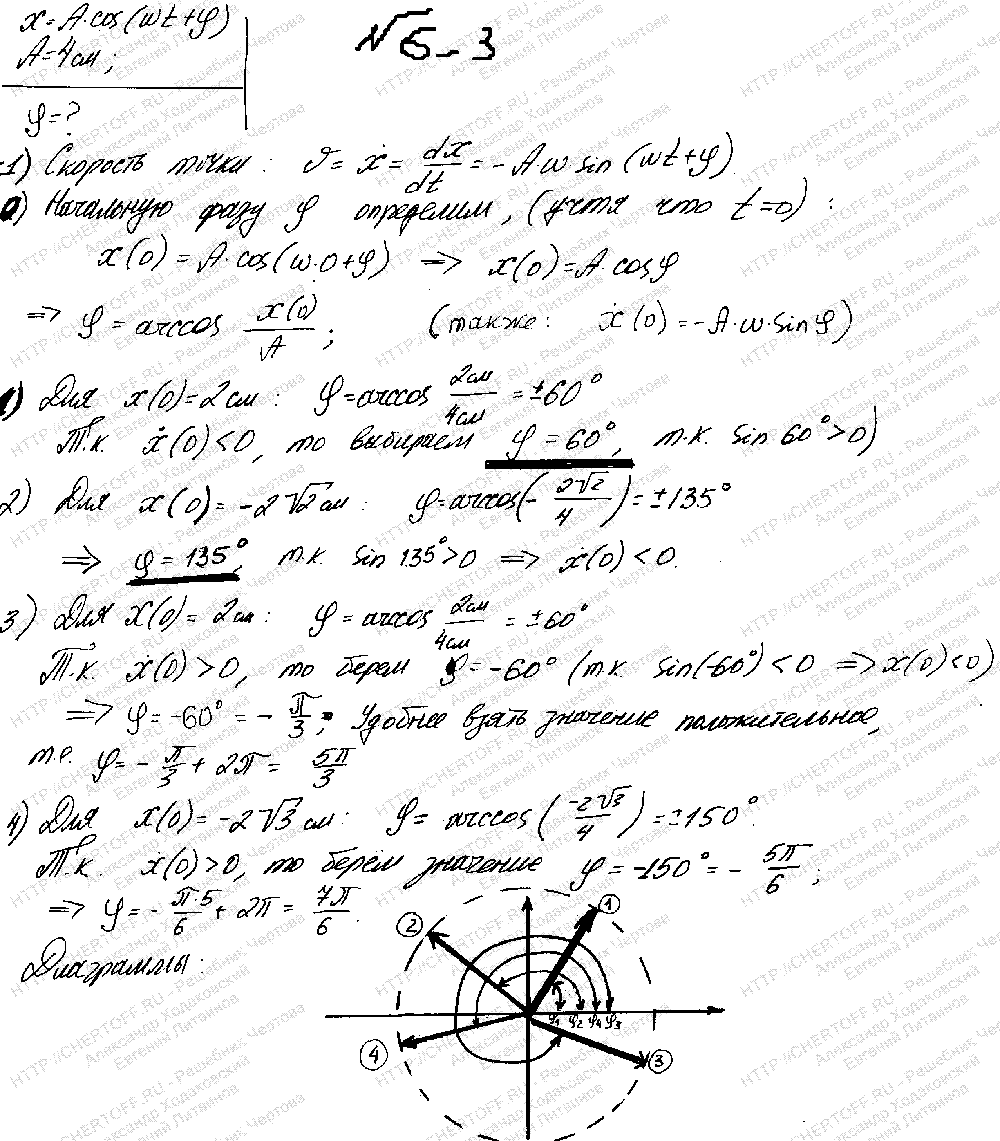 x = A·cos(wt+φ)
№6-3
A = 4см;
φ = ?
1) Скорость точки: υ = ẋ = dx/dt = -Aw sin(wt+φ)
0) Начальную фазу φ определим, (учтя что t=0):
x(0) = A·cos(w·0+φ) => x(0) = A·cosφ
=> φ = arccos x(0)/A; (также: ẋ(0) = -A·w·sinφ)
1) Для x(0) = 2см: φ = arccos 2см/4см = ±60°
Т.к. ẋ(0)<0, то выбираем φ = 60°, т.к. sin 60°>0)
2) Для x(0) = -2√2 см: φ = arccos(-2√2/4) = ±135°
=> φ = 135°, т.к. sin 135°>0 => ẋ(0)<0.
3) Для x(0) = 2см: φ = arccos 2см/4см = ±60°
Т.к. ẋ(0)>0, то берем φ = -60° (т.к. sin(-60°)<0 => ẋ(0)<0)
=> φ = -60° = -π/3; Удобнее взять значение положительное,
т.е. φ = -π/3 + 2π = 5π/3
4) Для x(0) = -2√3 см: φ = arccos(-2√3/4) = ±150°.
Т.к. ẋ(0)>0, то берем значение φ = -150° = -5π/6;
=> φ = -π·5/6 + 2π = 7π/6.
Диаграммы:
2 1
φ1 φ2 φ4 φ3
4 3
HTTP://CHERTOFF.RU - Решебник Чертова
Александр Ходаковский
Евгений Литвинов